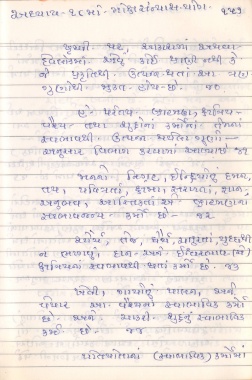 અધ્યાય-૧૮માં - મોક્ષસંન્યાસ-યોગ
પૃથ્વી પર, આકાશમાં અથવા
દેવોમાં એવું કોઈ પ્રાણી નથી કે
જે પ્રકૃતિથી ઉત્પન્ન થતાં આ ત્રણ
ગુણોથી મુક્ત હોય છે. ૪૦
હે પરંતપ બ્રાહ્મણ, ક્ષત્રિય-
વૈશ્ય તથા શુદ્રોનાં કર્મોનાં તેમનાં
સ્વભાવથી ઉત્પન્ન થયેલા ગુણો-
અનુસાર વિભાગ કરવામાં આવ્યા છે ૪૧
મનનો નિગ્રહ, ઈન્દ્રિયોનું દમન,
તપ, પવિત્રતા, ક્ષમા, સરળતા, જ્ઞાન,
અનુભવ, આસ્તિકતા એ બ્રાહ્મણના
સ્વભાવજન્ય કર્મો છે - ૪૨
શૌર્ય, તેજ, ધૈર્ય, ચતુરતા, યુદ્ધથી
ન ભાગવું, દાન અને ઈશ્વરભાવ (એ)
ક્ષત્રિયનાં સ્વભાવથી થતાં કર્મો છે. ૪૩
ખેતી, ગાયોનું પાલન, અને
વેપાર એ વૈશ્યનાં સ્વાભાવિક કર્મો
છે. અને ચાકરી શુદ્રનું સ્વાભાવિક
કર્મ છે. ૪૪
પોતપોતાનાં (સ્વાભાવિક) કર્મોમાં